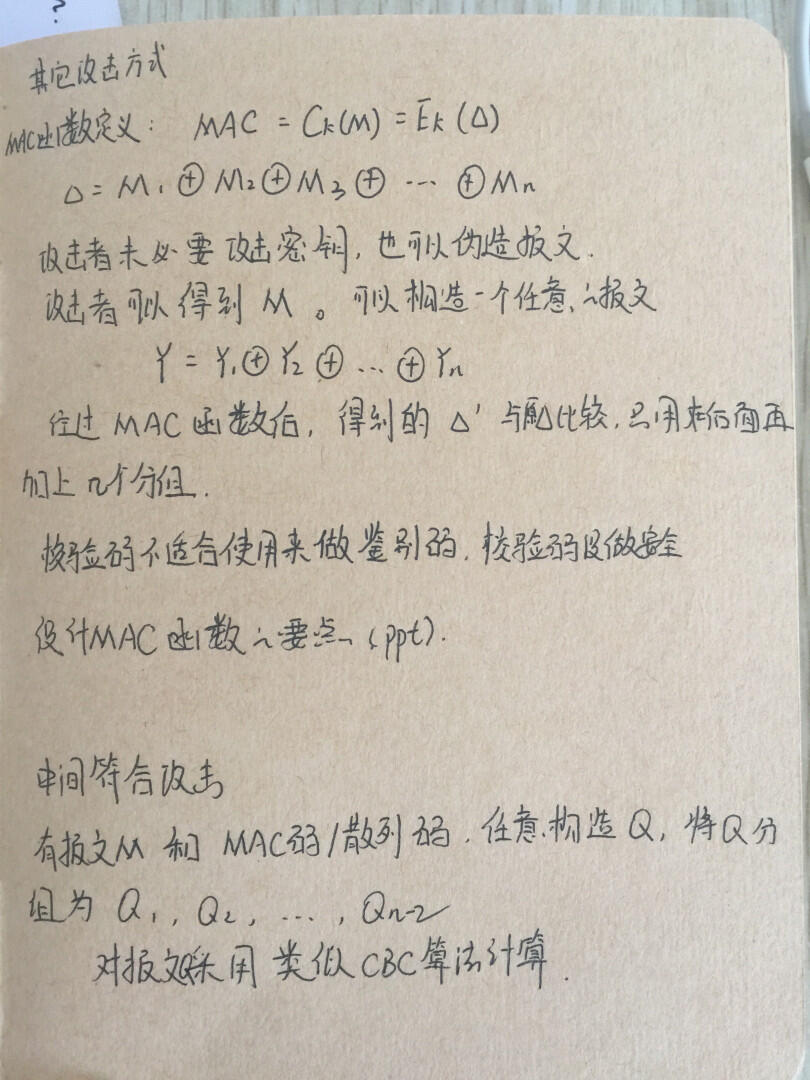 其它攻击方式
MAC函数定义： MAC = Ck(M) = Ek(Δ)
Δ = M1 ⊕ M2 ⊕ M3 ⊕ … ⊕ Mn
攻击者未必要攻击密钥，也可以伪造报文.
攻击者可以得到 M 。可以构造一个任意的报文
Y = Y1 ⊕ Y2 ⊕ … ⊕ Yn
经过 MAC 函数后，得到的 Δ' 与Δ比较，只用来后面再
加上几个分组.
校验码不适合使用来做鉴别码，校验码没做安全
设计MAC函数的要点 (ppt).
中间符合攻击
有报文M 和 MAC码/散列码. 任意构造Q，将Q分
组为 Q1, Q2, …, Qn-2
对报文Q采用 类似CBC算法计算.